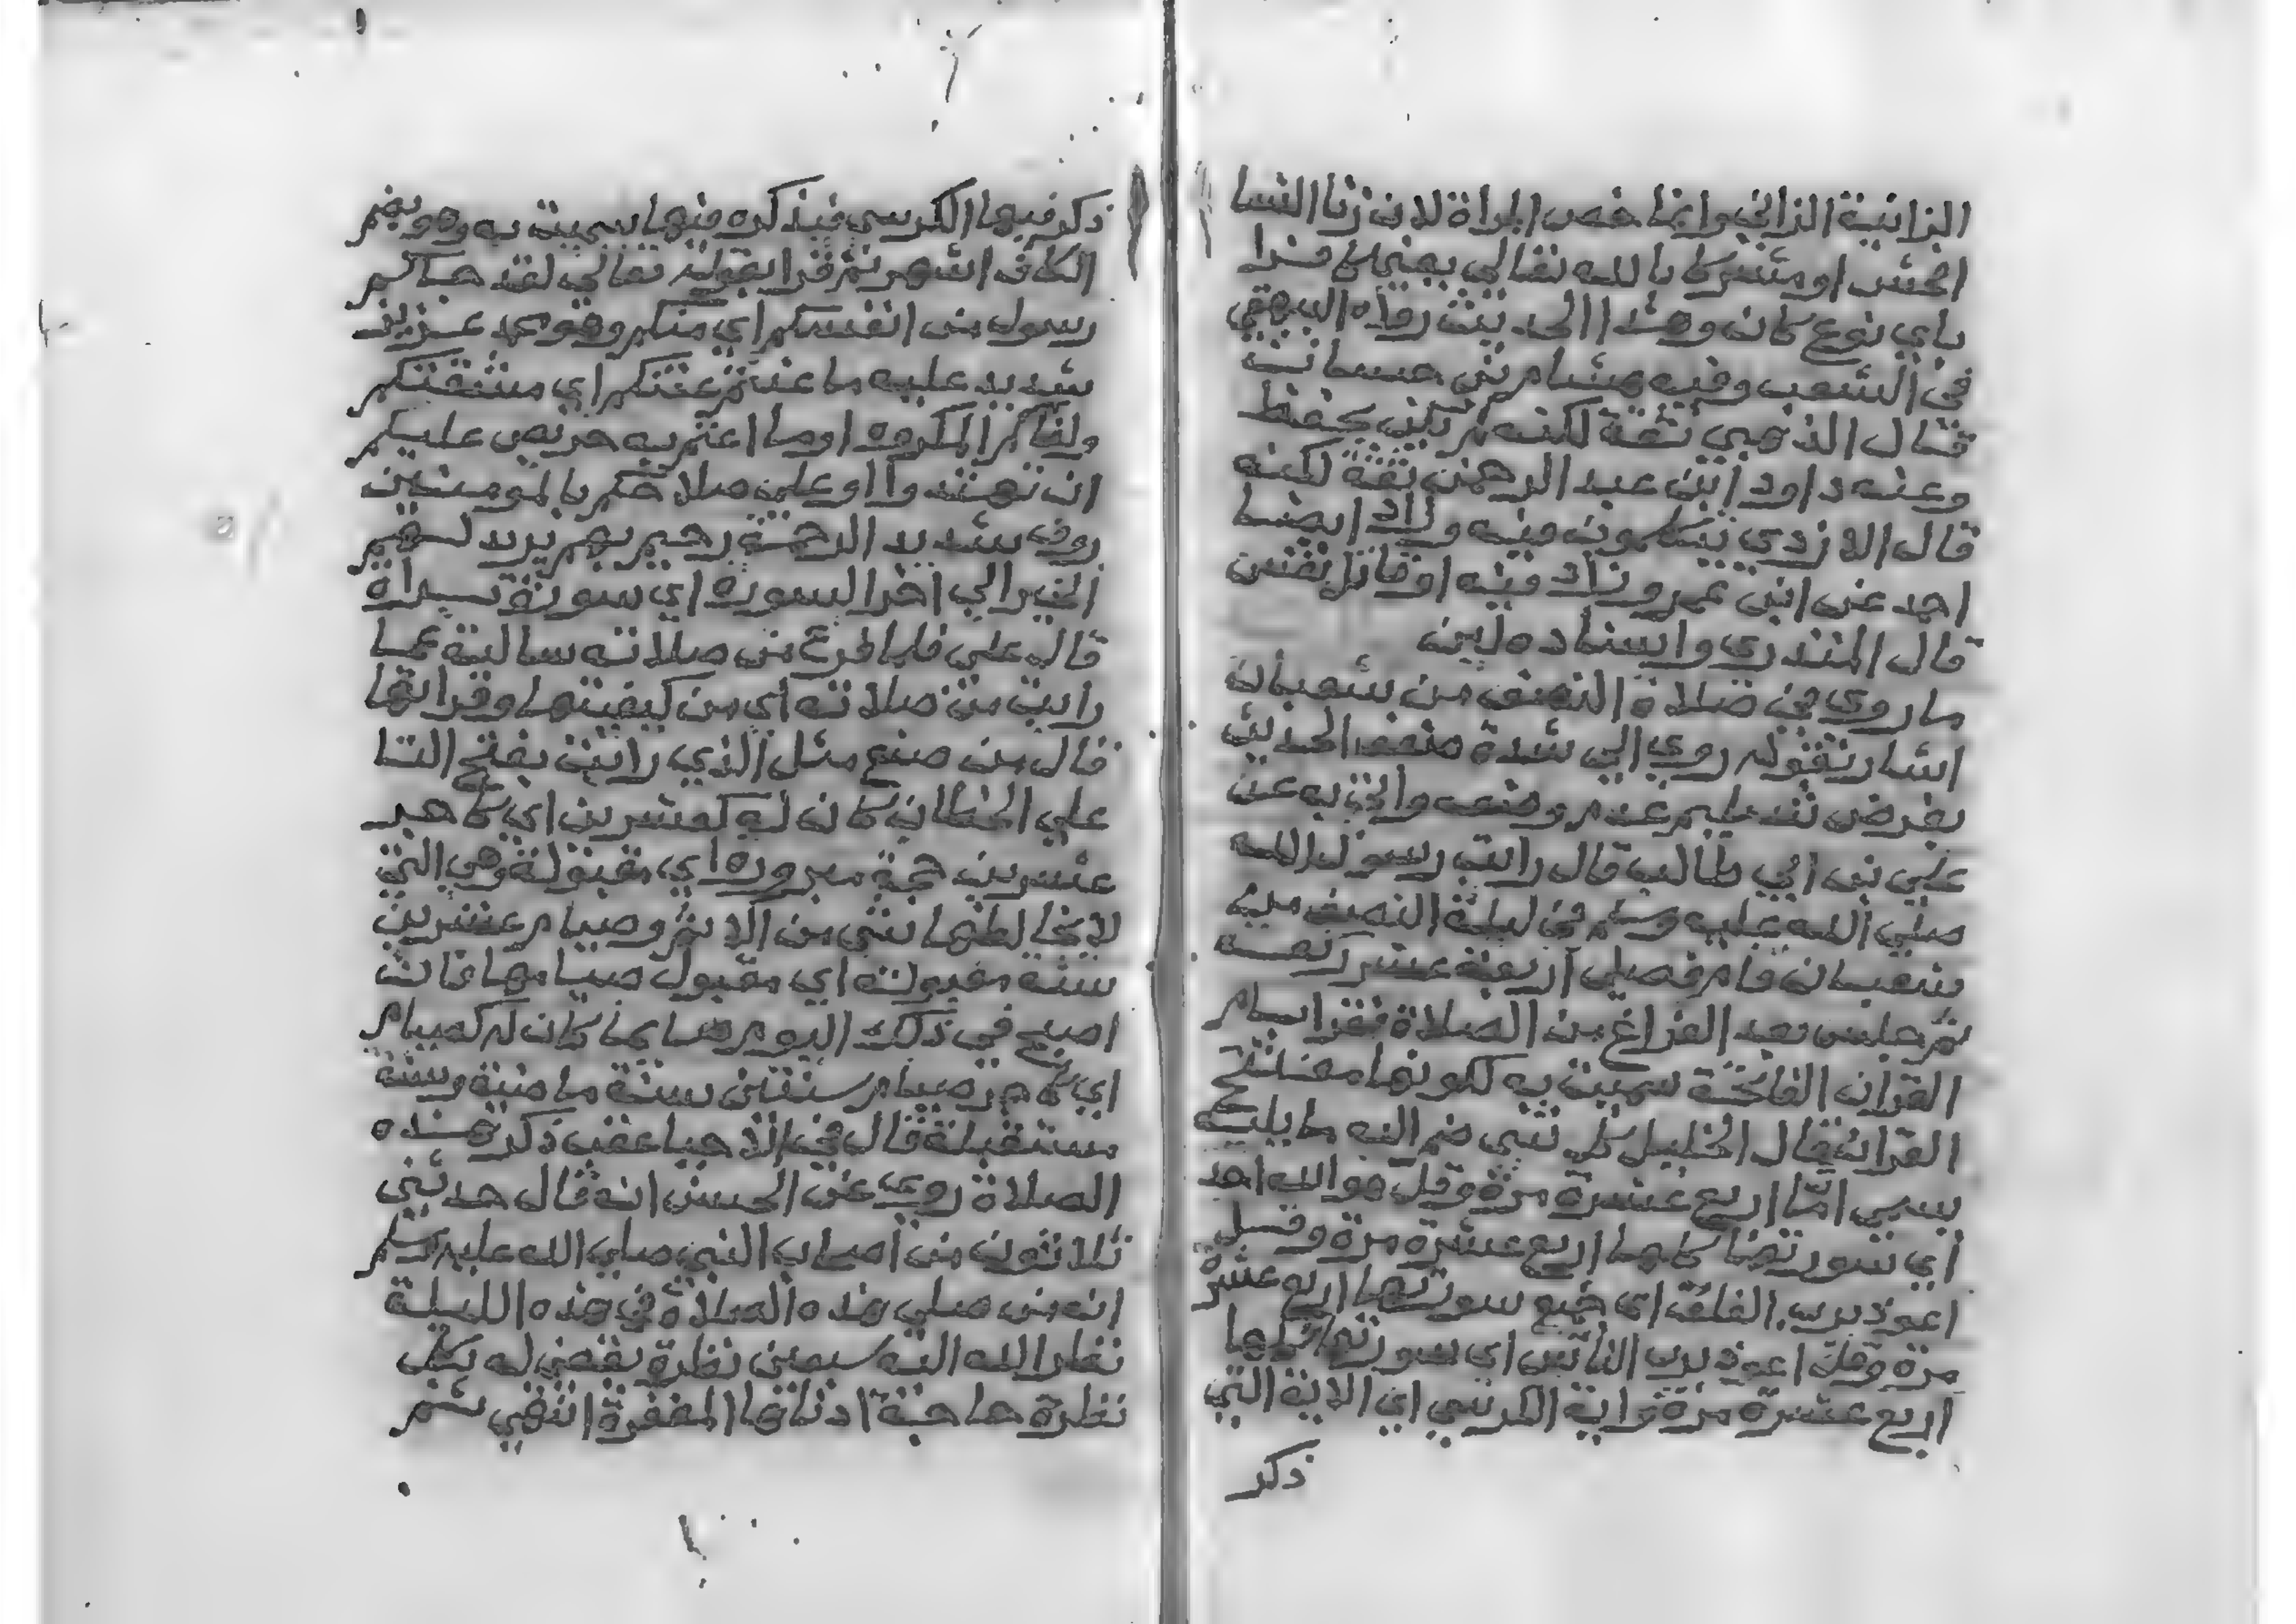 الزانية الزاني وانما خص المراة لان زنا النسا
افحش او مشركا بالله تعالى يعني كافرا
باي نوع كان وهذا الحديث رواه البيهقي
في الشعب وفيه هشام بن حسان
قال الذهبي ثقة لكنه لم يكن يحفظ
وعنه داود ابن عبد الرحمن ثقة لكنه
قال الازدي يتكلمون فيه وزاد ايضا
احمد عن ابن عمرو وزاد فيه او قاتل نفس
قال المنذري واسناده لين
ما روي في صلاة النصف من شعبان
اشار بقوله روي الي شدة ضعف الحديث
بفرض تسليم عدم وضعه واتي به عن
علي بن ابي طالب قال رايت رسول الله
صلي الله عليه وسلم في ليلة النصف من
شعبان قام فصلي اربعة عشر ركعة
ثم جلس بعد الفراغ من الصلاة فقرا بام
القران الفاتحة سميت به لكونها مفتتح
القران قال الخليل كل شي ضم اليه ما يليه
يسمي اما اربع عشرة مرة وقل هو الله احد
اي سورتها كلها اربع عشرة مرة وقل
اعوذ برب الفلق اي جميع سورتها اربع عشرة
مرة وقل اعوذ برب الناس اي سورتها كلها
اربع عشرة مرة واية الكرسي اي الاية التي
ذكر
ذكر فيها الكرسي فبذكره فيها سميت به وهو بضم
الكاف اشهر ثم قرا بقوله تعالي لقد جاكم
رسول من انفسكم اي منكم وهو محمد عزيز
شديد عليه ما عنتم عنتكم اي مشقتكم
ولقاكم المكروه او ما اعنتم به حريص عليكم
ان تهتدوا او علي صلاحكم بالمومنين
روف شديد الرحمة رحيم بهم يريد لهم
الخير الي اخر السورة اي سورة براة
قال علي فلما فرغ من صلاته سالته عما
رايت من صلاته اي من كيفيتها وقراتها
قال من صنع مثل الذي رايت بفتح التا
علي الخطاب كان له كعشرين اي كاجر
عشرين حجة مبرورة اي مقبولة وهي التي
لا يخالطها شي من الاثم وصيام عشرين
سنة مقبولة اي مقبول صيامها فان
اصبح في ذلك اليوم صايما كان له كصيام
اي كاجر صيام سنتين سنة ماضية وسنة
مستقبلة قال في الاحيا عقب ذكر هذه
الصلاة روي عن الحسن انه قال حدثني
ثلاثون من اصحاب النبي صلي الله عليه وسلم
انه من صلي هذه الصلاة في هذه الليلة
نظر الله اليه سبعين نظرة يقضي له بكل
نظرة حاجة ادناها المغفرة انتهي ثم